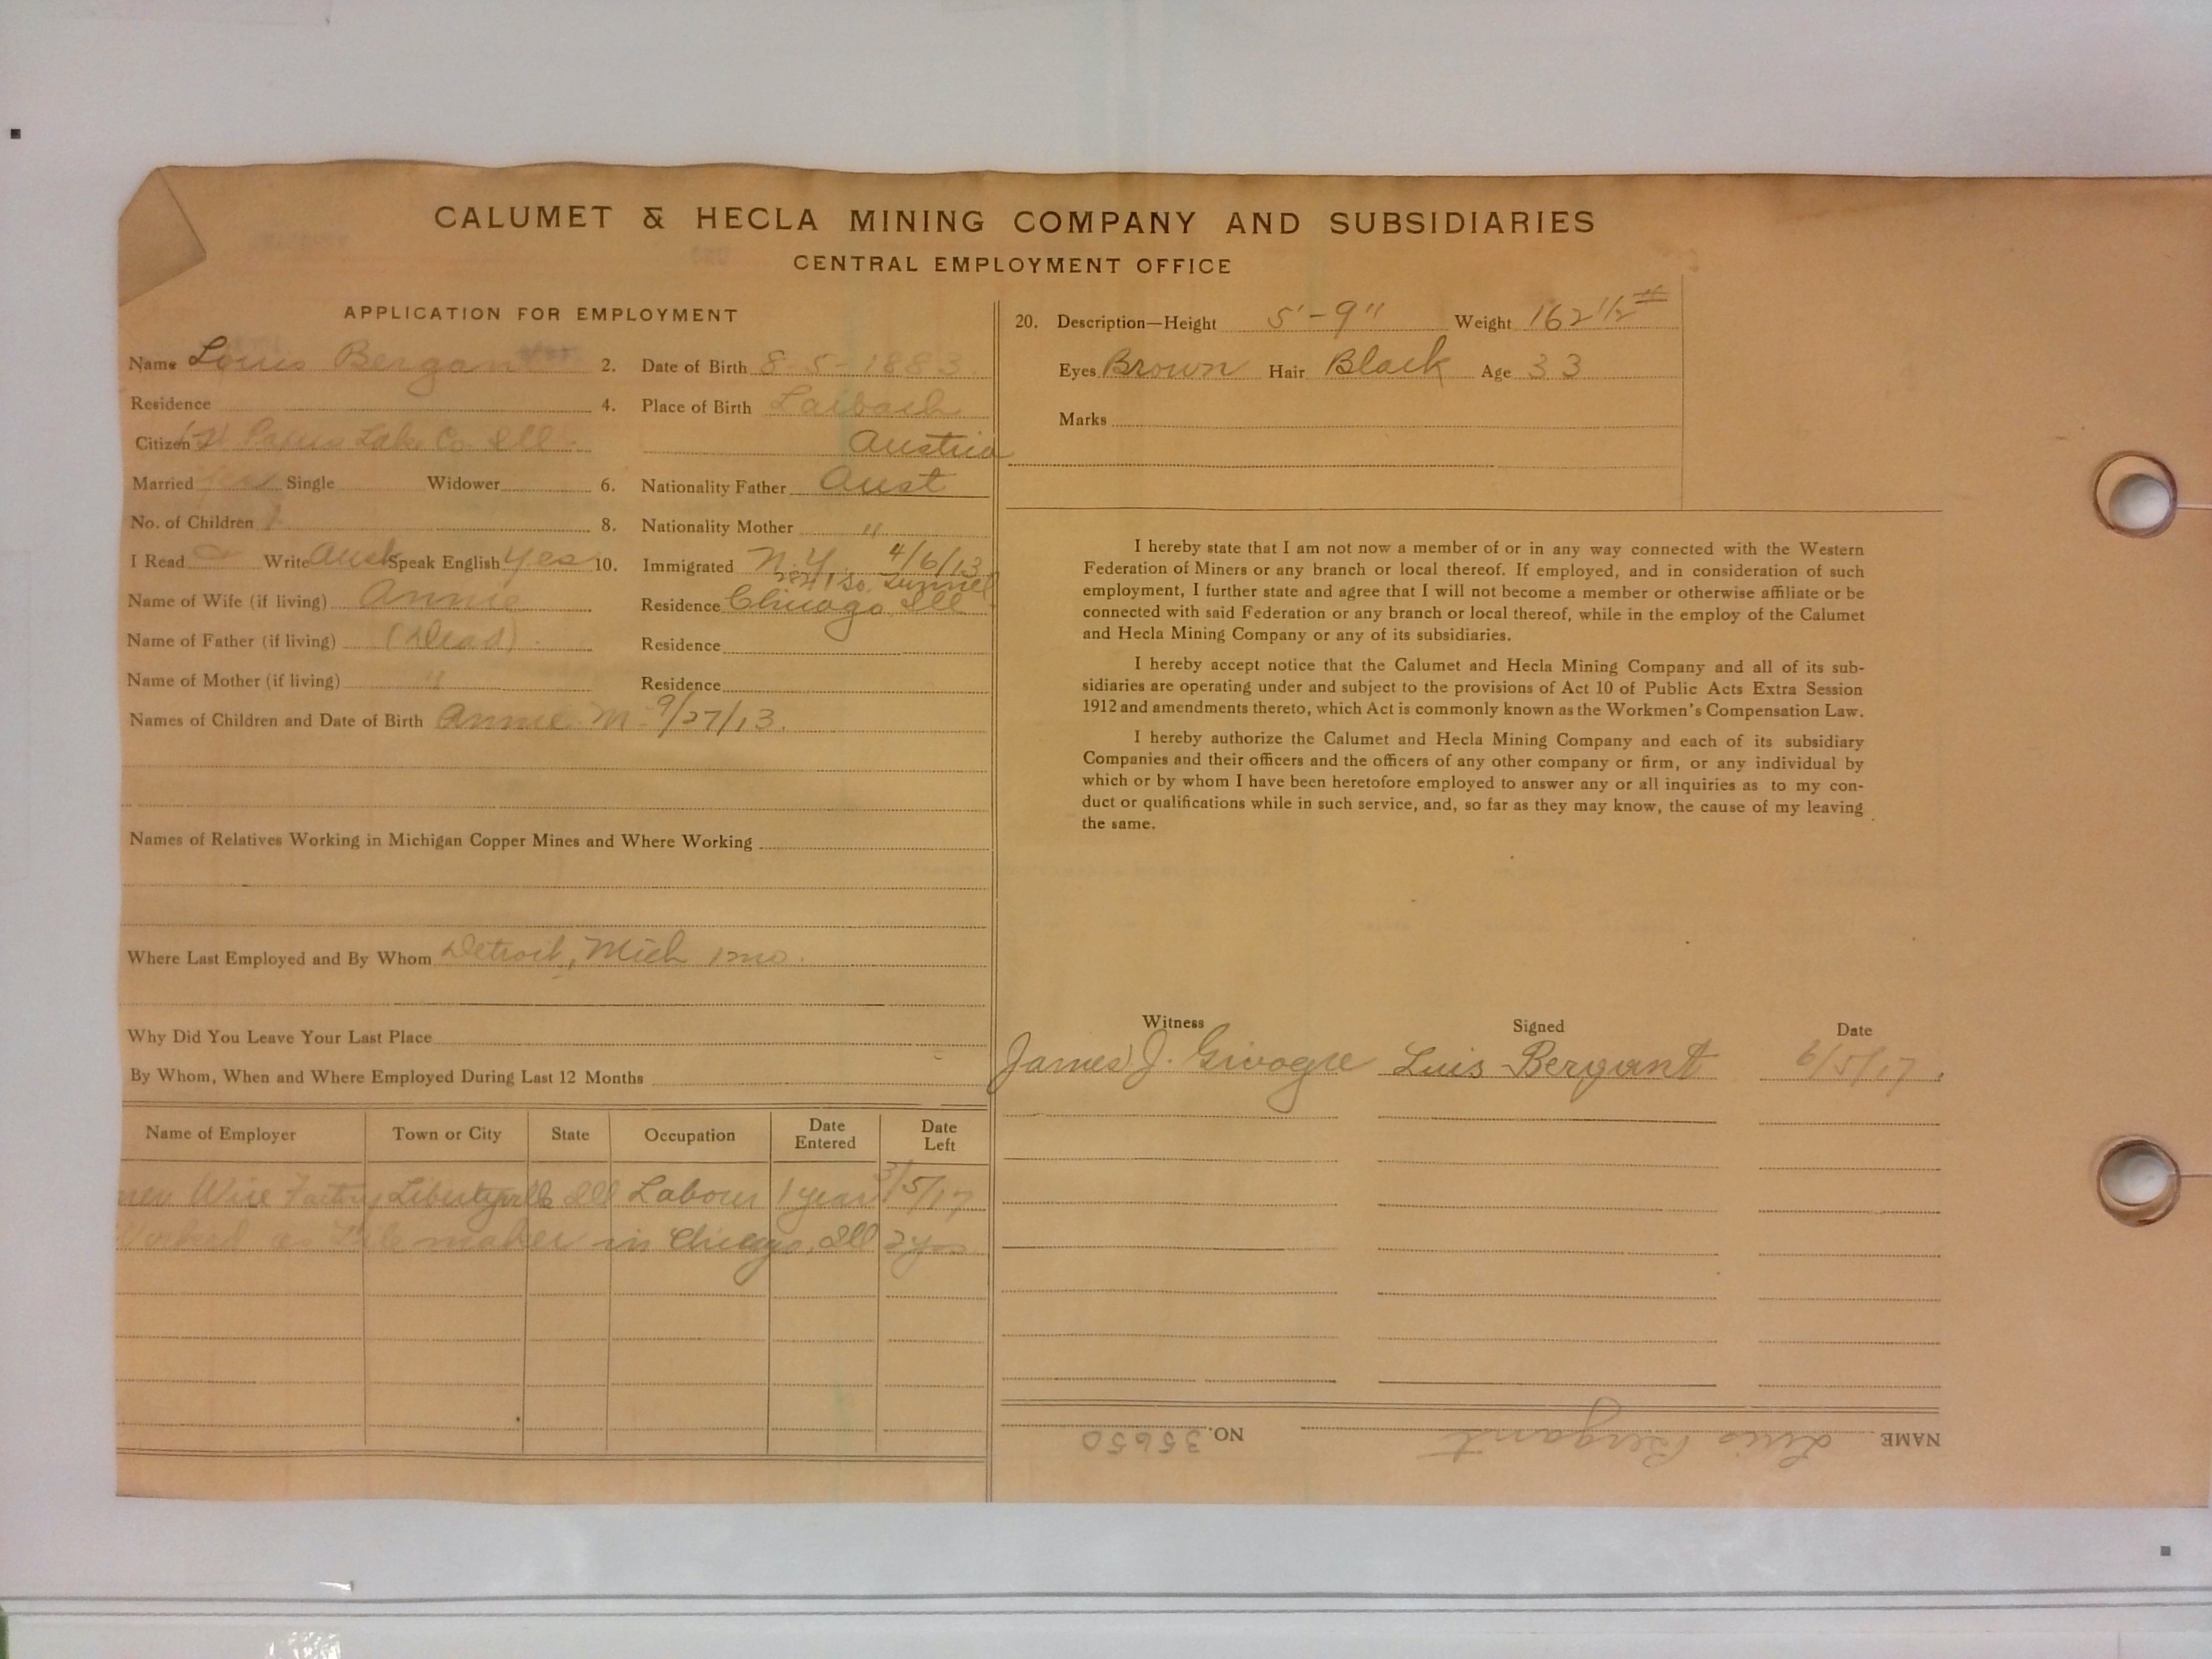 CALUMET & HECLA MINING COMPANY AND SUBSIDIARIES
CENTRAL EMPLOYMENT OFFICE
APPLICATION FOR EMPLOYMENT
Name Louis Bergant 2. Date of Birth 8-5-1883
Residence 4. Place of Birth Laibach
Citizen 1st Papers Lake Co. Ill Austria
Married yes Single Widower 6. Nationality Father Aust
No. of Children 1 8. Nationality Mother "
I Read Write Aust Speak English Yes 10. Immigrated N.Y. 4/6/13
Name of Wife (if living) Annie Residence Chicago Ill
Name of Father (if living) (Dead) Residence
Name of Mother (if living) " Residence
Names of Children and Date of Birth Annie M. 9/27/13.
Names of Relatives Working in Michigan Copper Mines and Where Working
Where Last Employed and By Whom Detroit, Mich 1 mo.
Why Did You Leave Your Last Place
By Whom, When and Where Employed During Last 12 Months
Name of Employer Town or City State Occupation Date Entered Date Left
Wire Factory Libertyville Ill Labour 1 year 3/5/17
Worked as maker in Chicago, Ill 2 yrs
20. Description—Height 5'-9" Weight 162 1/2 #
Eyes Brown Hair Black Age 33
Marks
I hereby state that I am not now a member of or in any way connected with the Western
Federation of Miners or any branch or local thereof. If employed, and in consideration of such
employment, I further state and agree that I will not become a member or otherwise affiliate or be
connected with said Federation or any branch or local thereof, while in the employ of the Calumet
and Hecla Mining Company or any of its subsidiaries.
I hereby accept notice that the Calumet and Hecla Mining Company and all of its sub-
sidiaries are operating under and subject to the provisions of Act 10 of Public Acts Extra Session
1912 and amendments thereto, which Act is commonly known as the Workmen's Compensation Law.
I hereby authorize the Calumet and Hecla Mining Company and each of its subsidiary
Companies and their officers and the officers of any other company or firm, or any individual by
which or by whom I have been heretofore employed to answer any or all inquiries as to my con-
duct or qualifications while in such service, and, so far as they may know, the cause of my leaving
the same.
Witness Signed Date
James J. Givogre Luis Bergant 6/5/17.
NAME Luis Bergant NO. 35650